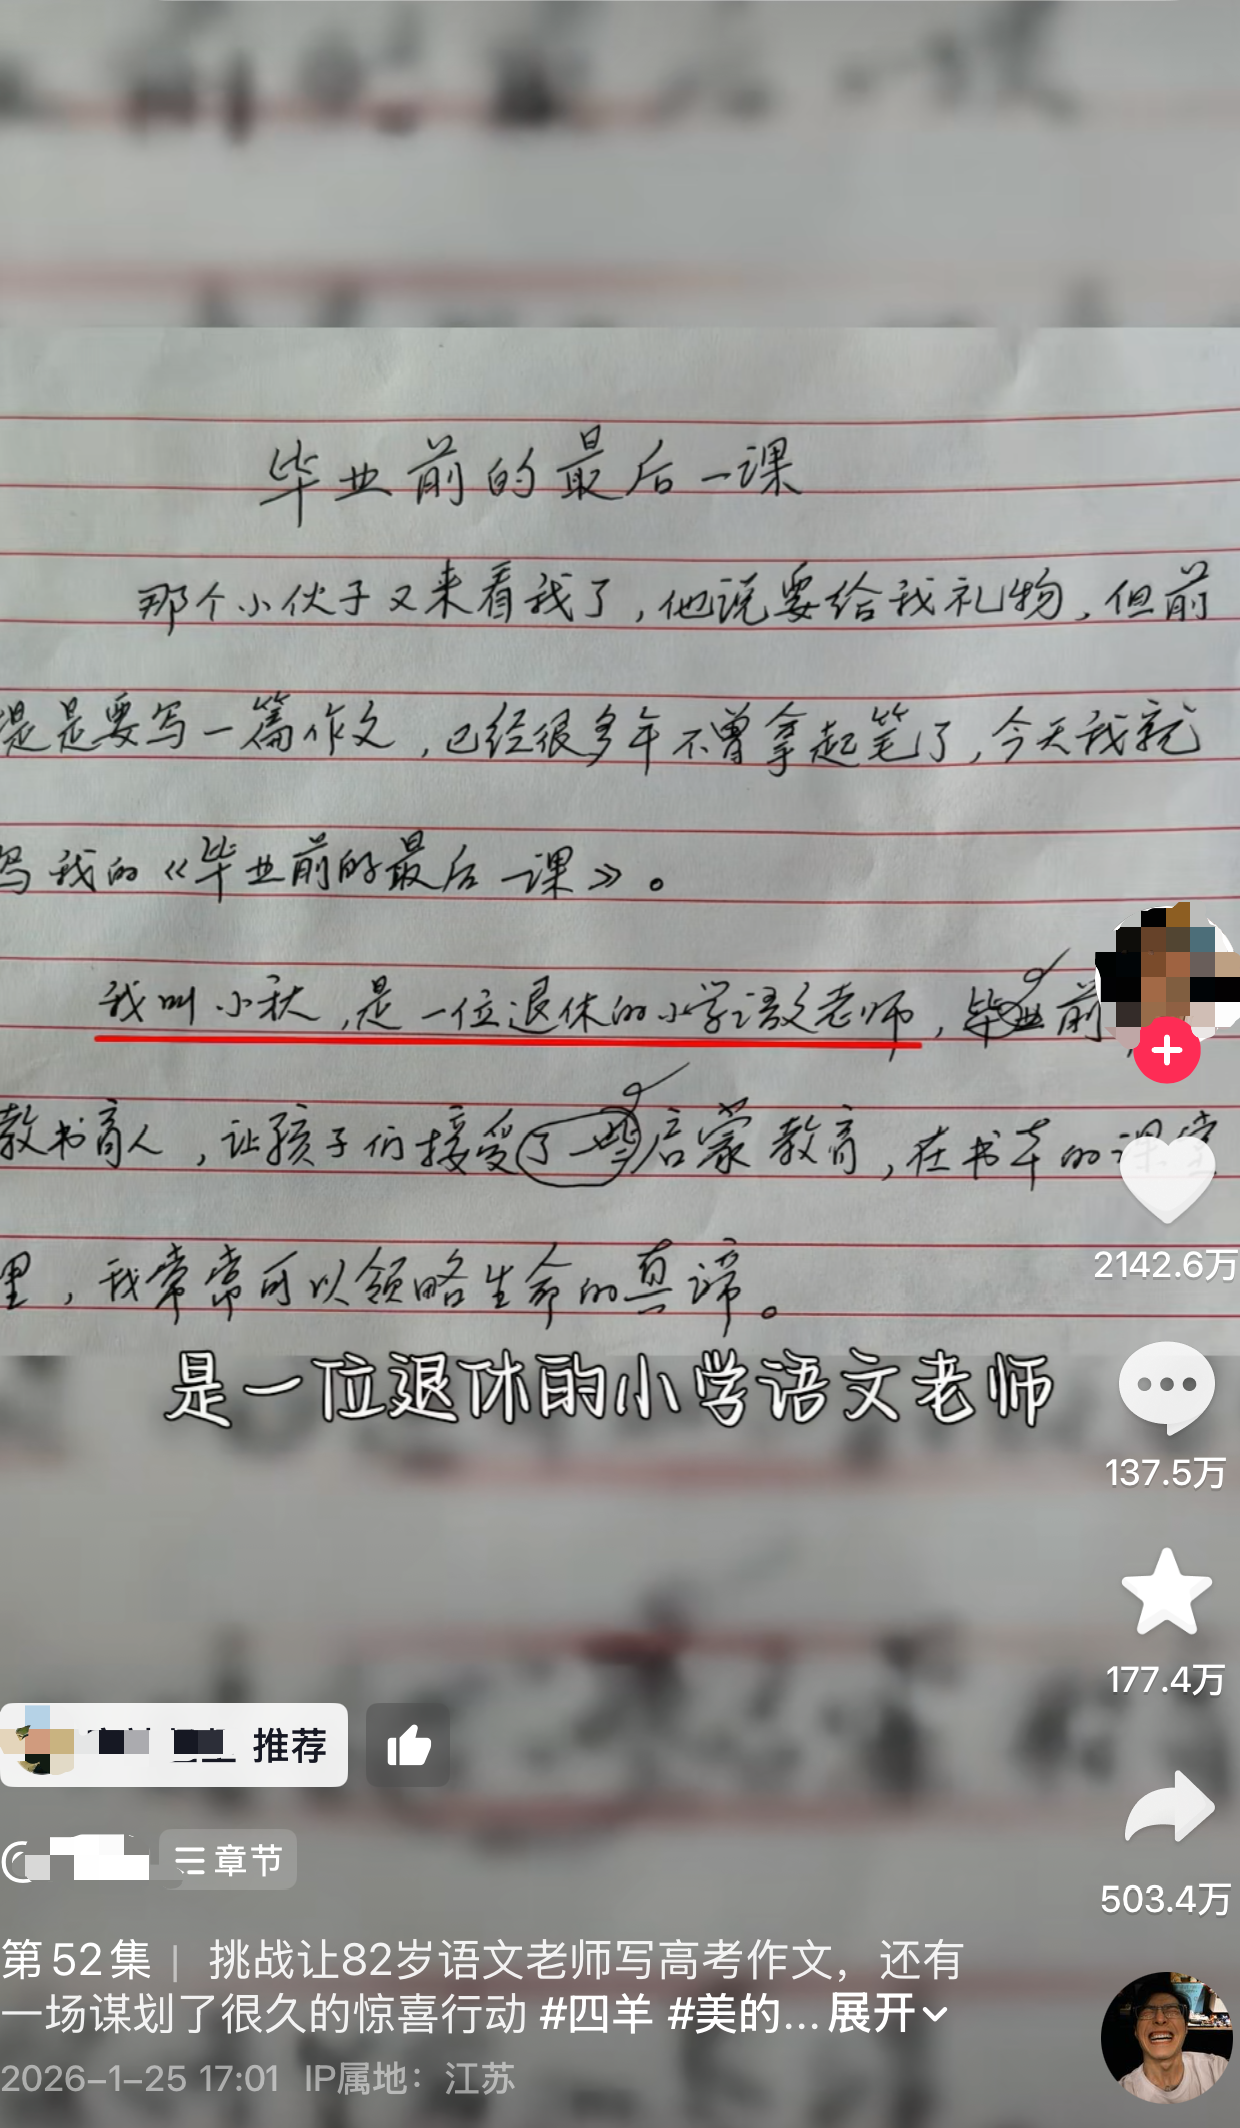 毕业前的最后一课
那个小伙子又来看我了,他说要给我礼物,但前
提是要写一篇作文,已经很多年不曾拿起笔了,今天我就
写我的《毕业前的最后一课》。
我叫小秋,是一位退休的小学语文老师,毕业前
教书育人,让孩子们接受了一些启蒙教育,在书本的课堂
里,我常常可以领略生命的真谛。
是一位退休的小学语文老师
2142.6万
137.5万
177.4万
503.4万
推荐
章节
第52集 | 挑战让82岁语文老师写高考作文,还有
一场谋划了很久的惊喜行动 #四羊 #美的...展开
2026-1-25 17:01 IP属地:江苏